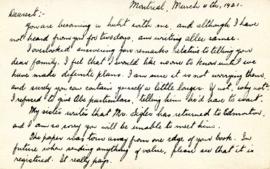 Montreal, March 4th, 1921.
Dearest:-
You are becoming a habit with me, and although I have
not heard from you for two days, am writing all the same.
I overlooked answering your remarks relative to telling your
dear family. I feel that I would like no one to know until we
have made definite plans. I am sure it is not worrying them,
and surely you can contain yourself a little longer. If not, why not
I refused to give the particulars, telling him he'd have to wait.
My sister writes that Mr. has returned to Edmonton,
and I am so sorry you will be unable to meet him.
The paper was torn away from one edge of your book. In
future when sending anything of value, please see that it is
registered. It really pays.